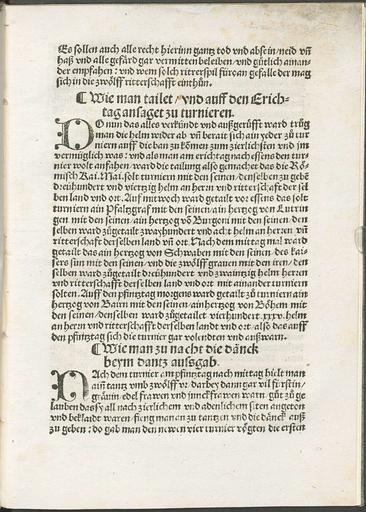 Es sollen auch alle recht hierinn gantz tod vnd absein/neid vñ
haß vnd alle gefärd gar vermitten beleiben/vnd gütlich ainan-
der empfahen: vnd wem solch ritterspil fürcan gefalle der mag
sich in die zwölff ritterschafft einthün.
¶ Wie man tailet/vnd auff den Erich-
tag ansaget zu turnieren.
DO nun das alles verkündt vnd außgerüfft ward/trüg
man die helm wider ab vñ berait sich ain yeder zů tur
niern auff die ban zu kömen zum zierlichsten vnd im
vermüglich was: vnd als man am erichtag nach essens den tur-
nier wolt anfahen/ward die tailung also gemachet das die Rö-
misch Kai. Mai. solt turniern mit den seinen/denselben zu gebē
drewhundert vnd viertzig helm an herrn vnd ritterschaft der sel
ben land vnd ort. Auf mitwoch ward getailt vor essens das solt
turniern ain Pfaltzgraf mit den seinen/ain hertzog von Lutrin
gen mit den seinen/ain hertzog vō Burgun mit den seinen/den
selben ward zůgetailt zwayhundert vnd acht helm an herren vñ
ritterschafft derselben land vñ ort. Nach dem mittag mal ward
getailt das ain hertzog von Schwaben mit den seinen/des kai-
sers sun mit den seinen/vnd die zwölff grauen mit den iren/den
selben ward zůgetailt drewhundert vnd zwaintzig helm herren
vnd ritterschafft derselben land vnd ort mit ainander turniern
solten. Auff den pfintztag morgens ward getailt zů turniern ain
hertzog von Bairn mit den seinen/ain hertzog von Böhem mit
den seinen/denselben ward zůgetailet vierhundert.xxxv.helm
an herrn vnd ritterschafft derselben landt vnd ort/also das auff
den pfintztag sich die turnier gar volendten vnd außwarn.
¶ Wie man zu nacht die dänck
beym dantz aussgab.
NAch dem turnier am pfintztag nach mittag hielt man
ain tantz vmb zwölff vr/darbey dann gar vil fürstin/
gräuin/edel frawen vnd junckfrawen warn/gůt zů ge
lauben das sy all nach zierlichem vnd adenlichem siten angeton
vnd beklaidt waren/fieng man an zu tantzen vnd die dänck auß
zu geben: do gab man den newen vier turnier vögten die ersten